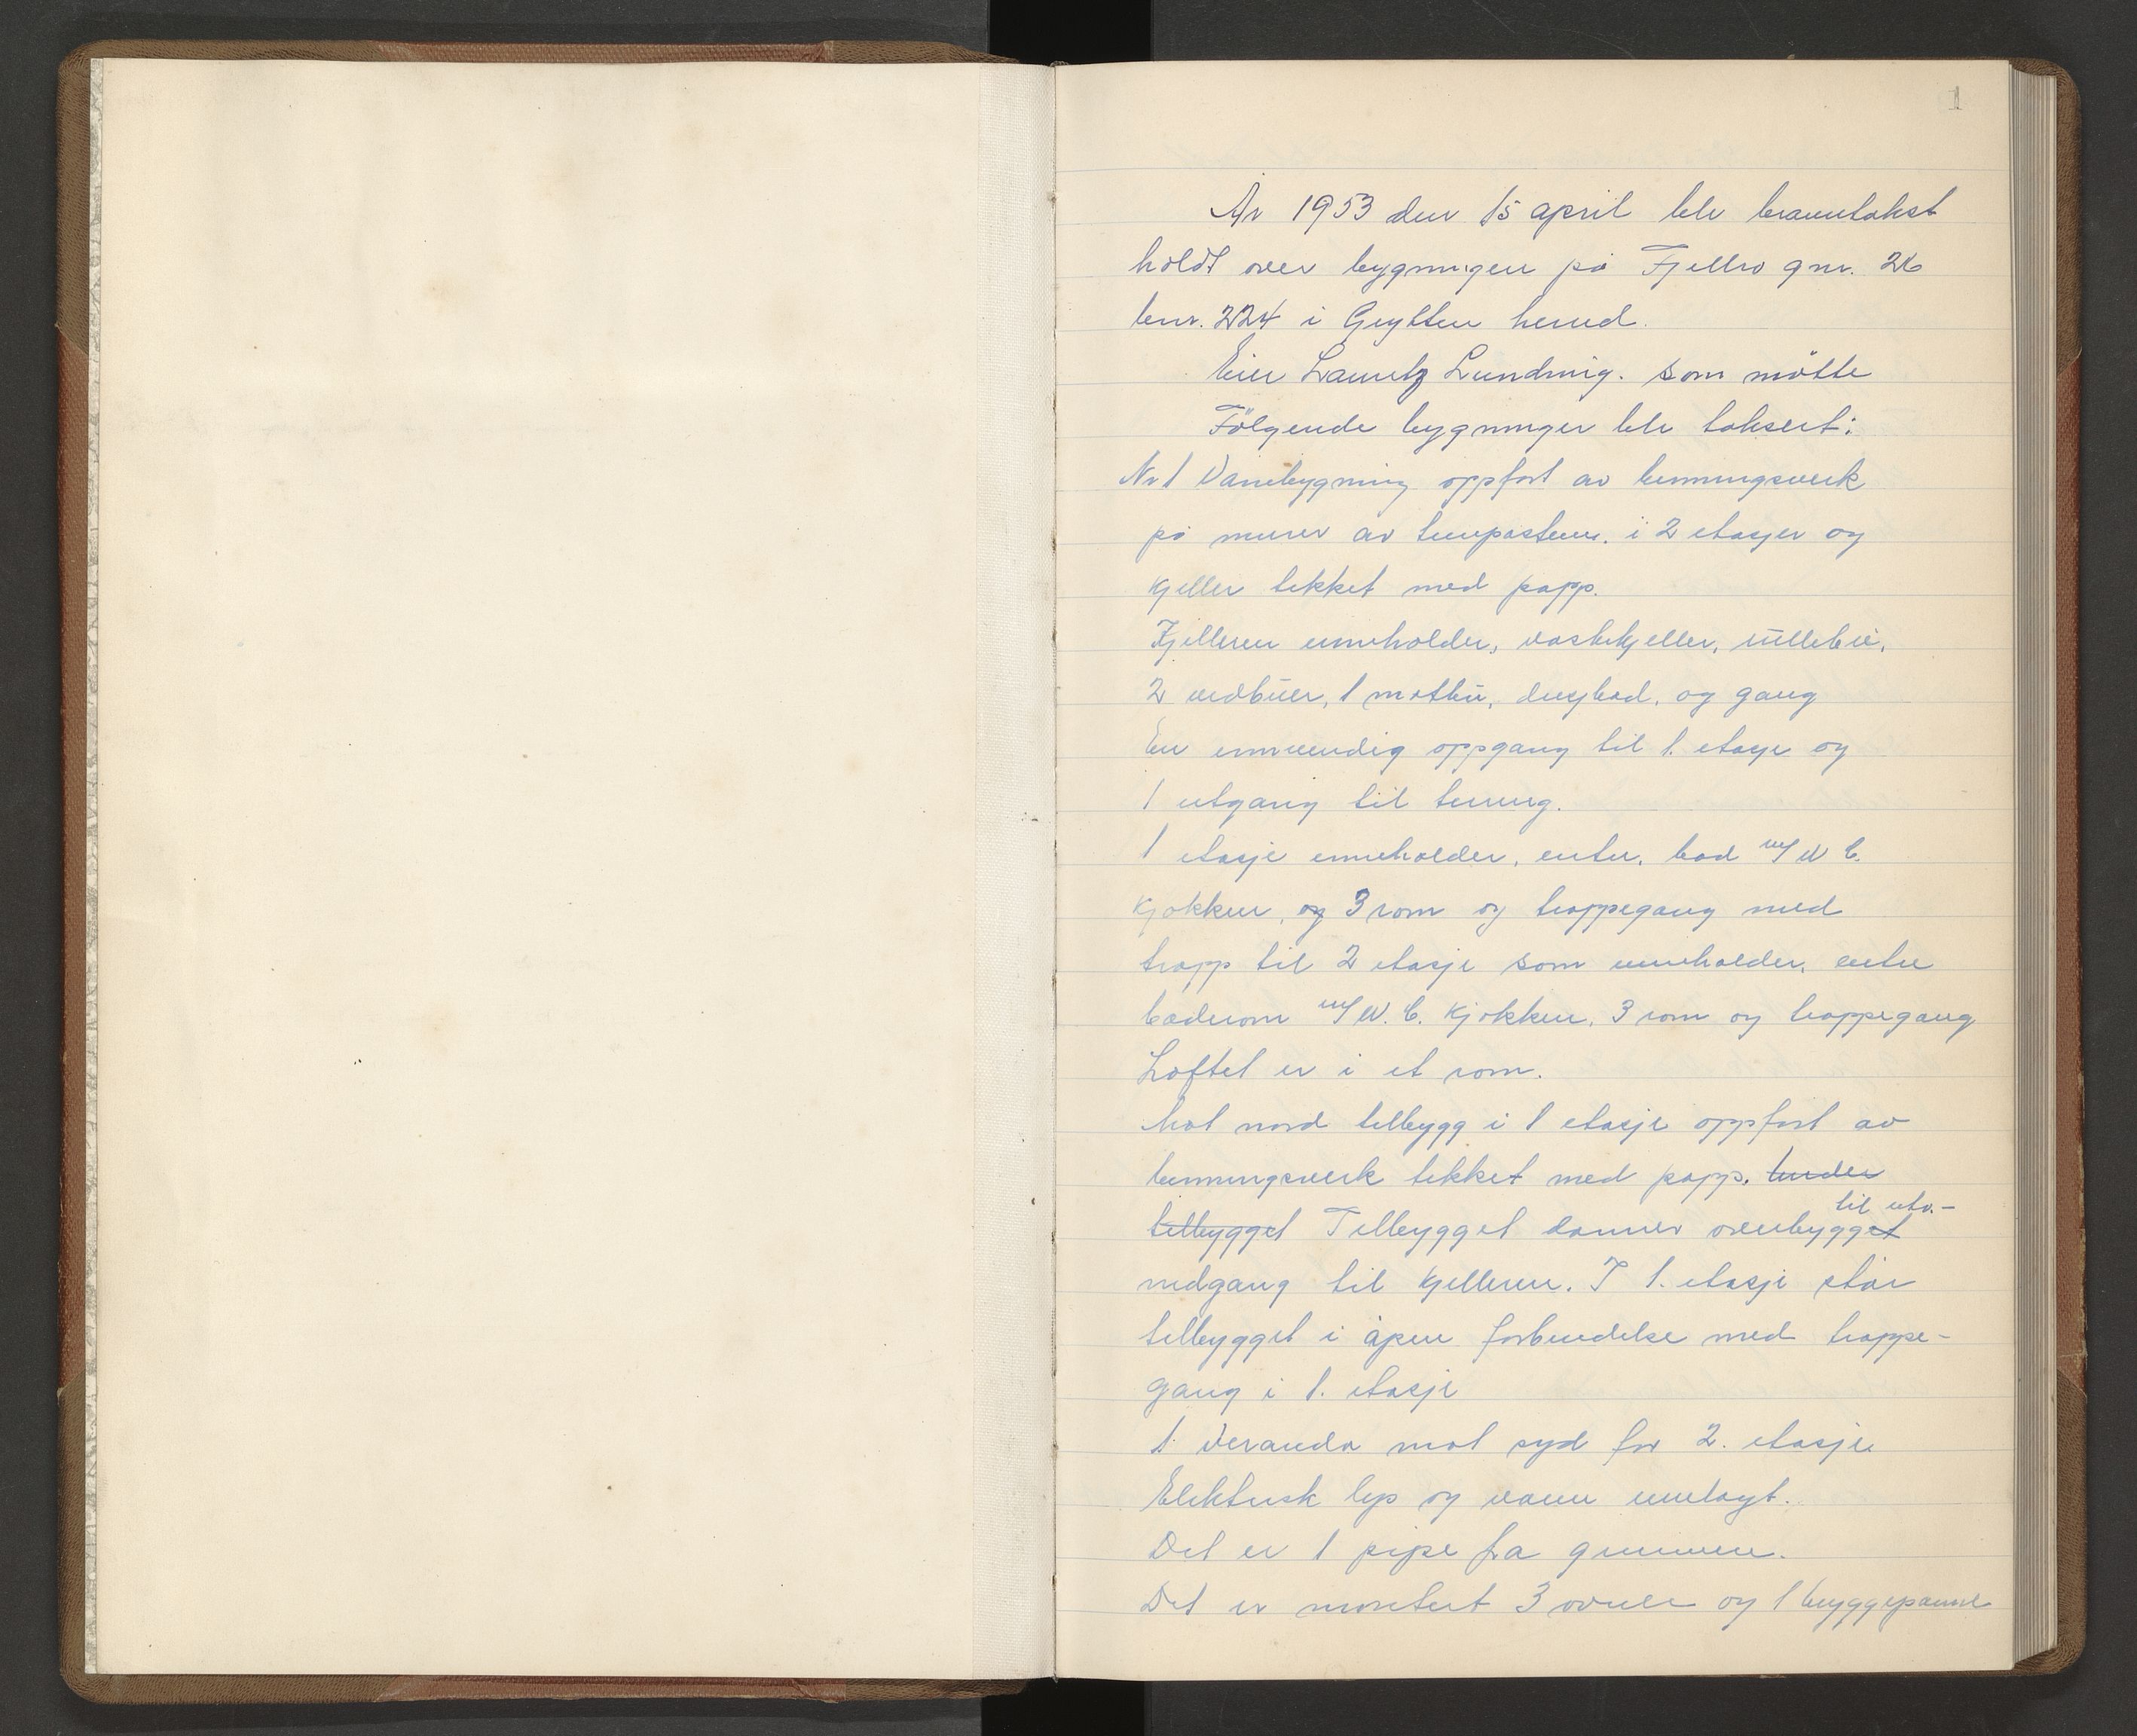 1
År 1953 den 15 april ble branntakst
holdt over bygningen på Fjellro gnr. 26
bnr. 224 i Grytten herred.
Eier Lauritz Lundvig. som mötte
Fölgende bygninger ble taksert:
Nr 1 Vånebygning oppfört av binningsverk
på murer av tempostein. i 2 etasjer og
kjeller tekket med papp.
Kjelleren inneholder, vaskekjeller, rullebu,
2 vedbuer, 1 matbu, dusjbad, og gang
En innvendig oppgang til 1. etasje og
1 utgang til terreng.
1 etasje inneholder, entre, bad m/ W C.
Kjökken, og 3 rom og trappegang med
trapp til 2 etasje som inneholder, entre
baderom m/ W. C. Kjökken, 3 rom og trappegang
Loftet er i et rom.
Mot nord tilbygg i 1 etasje oppfört av
binningsverk tekket med papp. Under
til utv.-
tilbygget Tilbygget danner overbygget
nedgang til kjelleren. I 1. etasje står
tilbygget i åpen forbindelse med trappe-
gang i 1. etasje
1. Veranda mot syd for 2. etasje
Elektrisk lys og vann innlagt.
Det er 1 pipe fra grunnen.
Det er montert 3 ovner og 1 bryggepanne